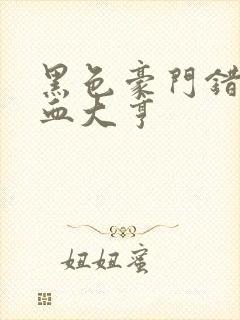 黑色豪門錯
血大亨
妞妞蜜